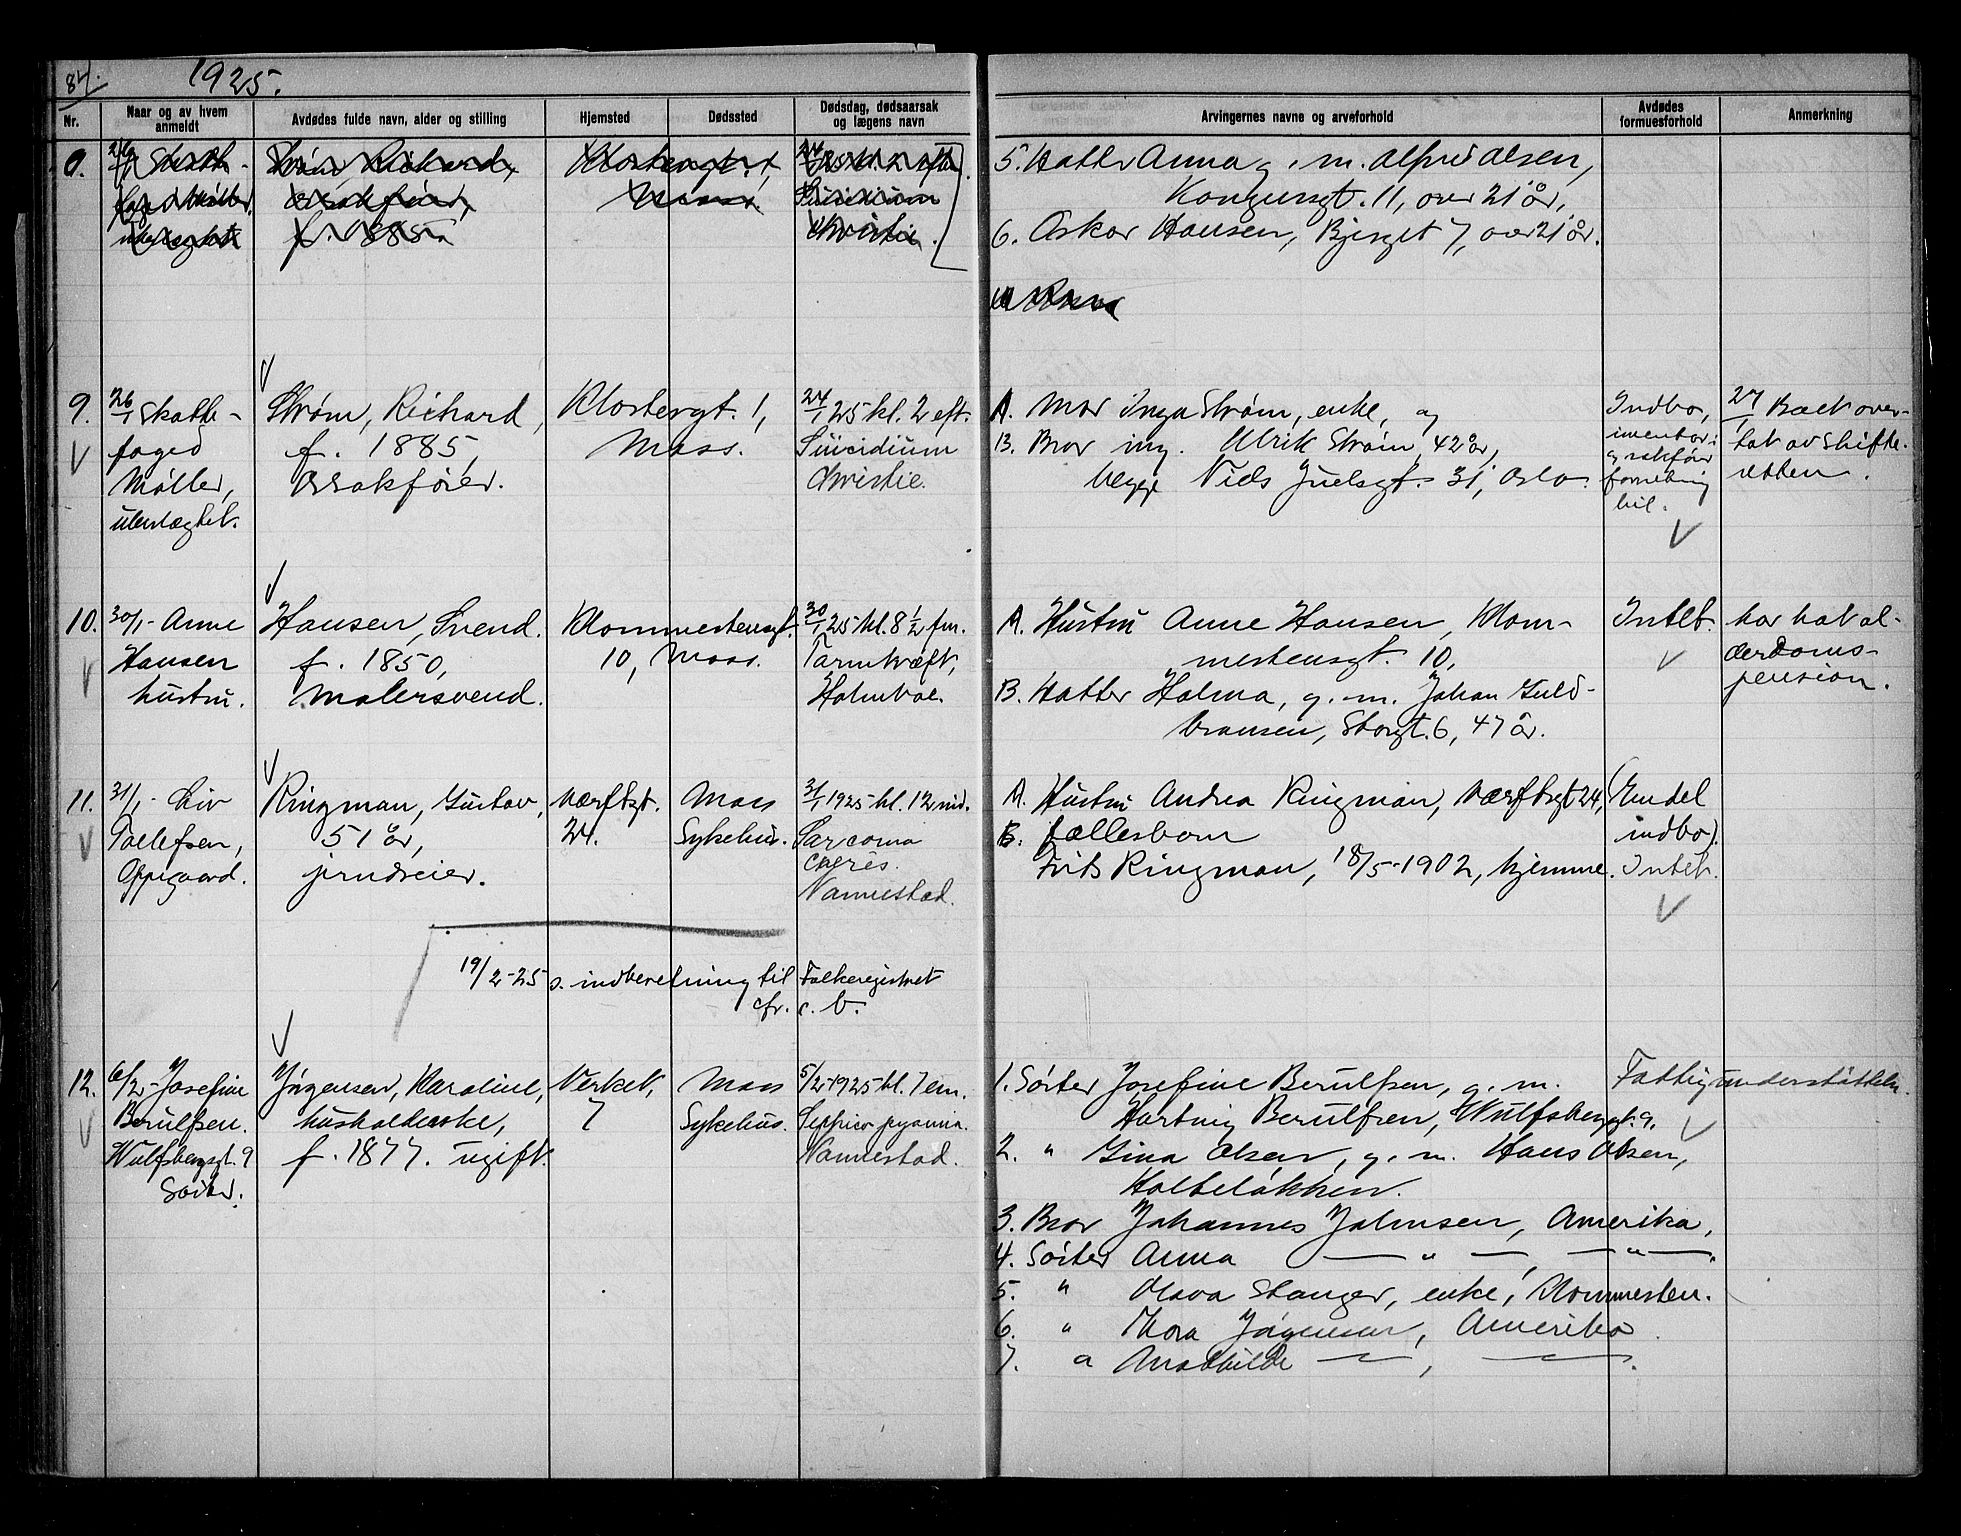 84.
1925.
Nr.
Naar og av hvem
anmeldt
Avdødes fulde navn, alder og stilling
Hjemsted
Dødssted
Dødsdag, dødsaarsak
og lægens navn
Arvingernes navne og arveforhold
Avdødes
formuesforhold
Anmerkning
Strøm, Richard,
o.r.sakfører,
f. 1885
Klostergt. 1,
Moss.
Suicidium
Christie.
5. Datter Anna g. m. Alfred Olsen,
Kongensgt. 11, over 21 år,
6. Oskar Hansen, Bjerget 7, over 21 år.
9.
26/1 Skatte-
foged
Møller,
ubeslægtet.
Strøm, Richard,
f. 1885,
orsakfører.
Klostergt. 1,
Moss.
24/1 25 kl. 2 eft.
Suicidium
Christie.
A. Mor Inga Strøm, enke, og
B. Bror ing. Ulrik Strøm, 42 år,
begge Niels Juelsgt. 31, Oslo.
Indbo,
inventar i
og sakfører
forretning
bil.
27/1 Boet over-
tat av skifte-
retten.
10.
30/1- Anne
Hansen
hustru.
Hansen, Svend.
f. 1850,
malersvend.
Klommestensgt.
10, Moss.
30/1 25 kl. 8 1/2 fm.
Tarmkræft,
Holmboe.
A. Hustru Anne Hansen, Klom-
mestensgt. 10,
B. Datter Halma, g. m. Johan Guld-
bransen, Storgt. 6, 47 år.
Intet.
har hat al-
derdoms-
pension.
11.
31/1- Liv
Tollefsen,
Oppegaard.
Ringman, Gustav,
51 år,
jerndreier.
Værftsgt.
24.
Moss
Sykehus.
31/1 1925 kl. 12 mid.
Sarcoma
Nannestad.
A. Hustru Andrea Ringman, Værftsgt 24,
B. fællesbarn
Frits Ringman, 18/5-1902, hjemme.
(Endel
indbo).
Intet.
19/2-25 s. indberetning til Folkeregistret
cfr. c. b.
12.
6/2- Josefine
Berulfsen.
Wulfsbergsgt. 9
Søster.
Jørgensen, Karoline,
husholderske,
f. 1877. ugift.
Verket,
7
Moss
Sykehus.
5/2-1925 kl. 7 em.
Septico pyæmia.
Nannestad.
1. Søster Josefine Berulfsen, g. m.
Hartvig Berulfsen, Wulfsbergsgt. 9.
2. " Gina Olsen, g. m. Hans Olsen,
Holteløkken.
3. Bror Johannes Johnsen, Amerika,
4. Søster Anna — " —, — " —.
5. " Olava Stanger, enke, Klommesten.
6. " Thora Jørgensen, Amerika.
7. " Mathilde — " —, — " —.
Fattigunderstøttelse.